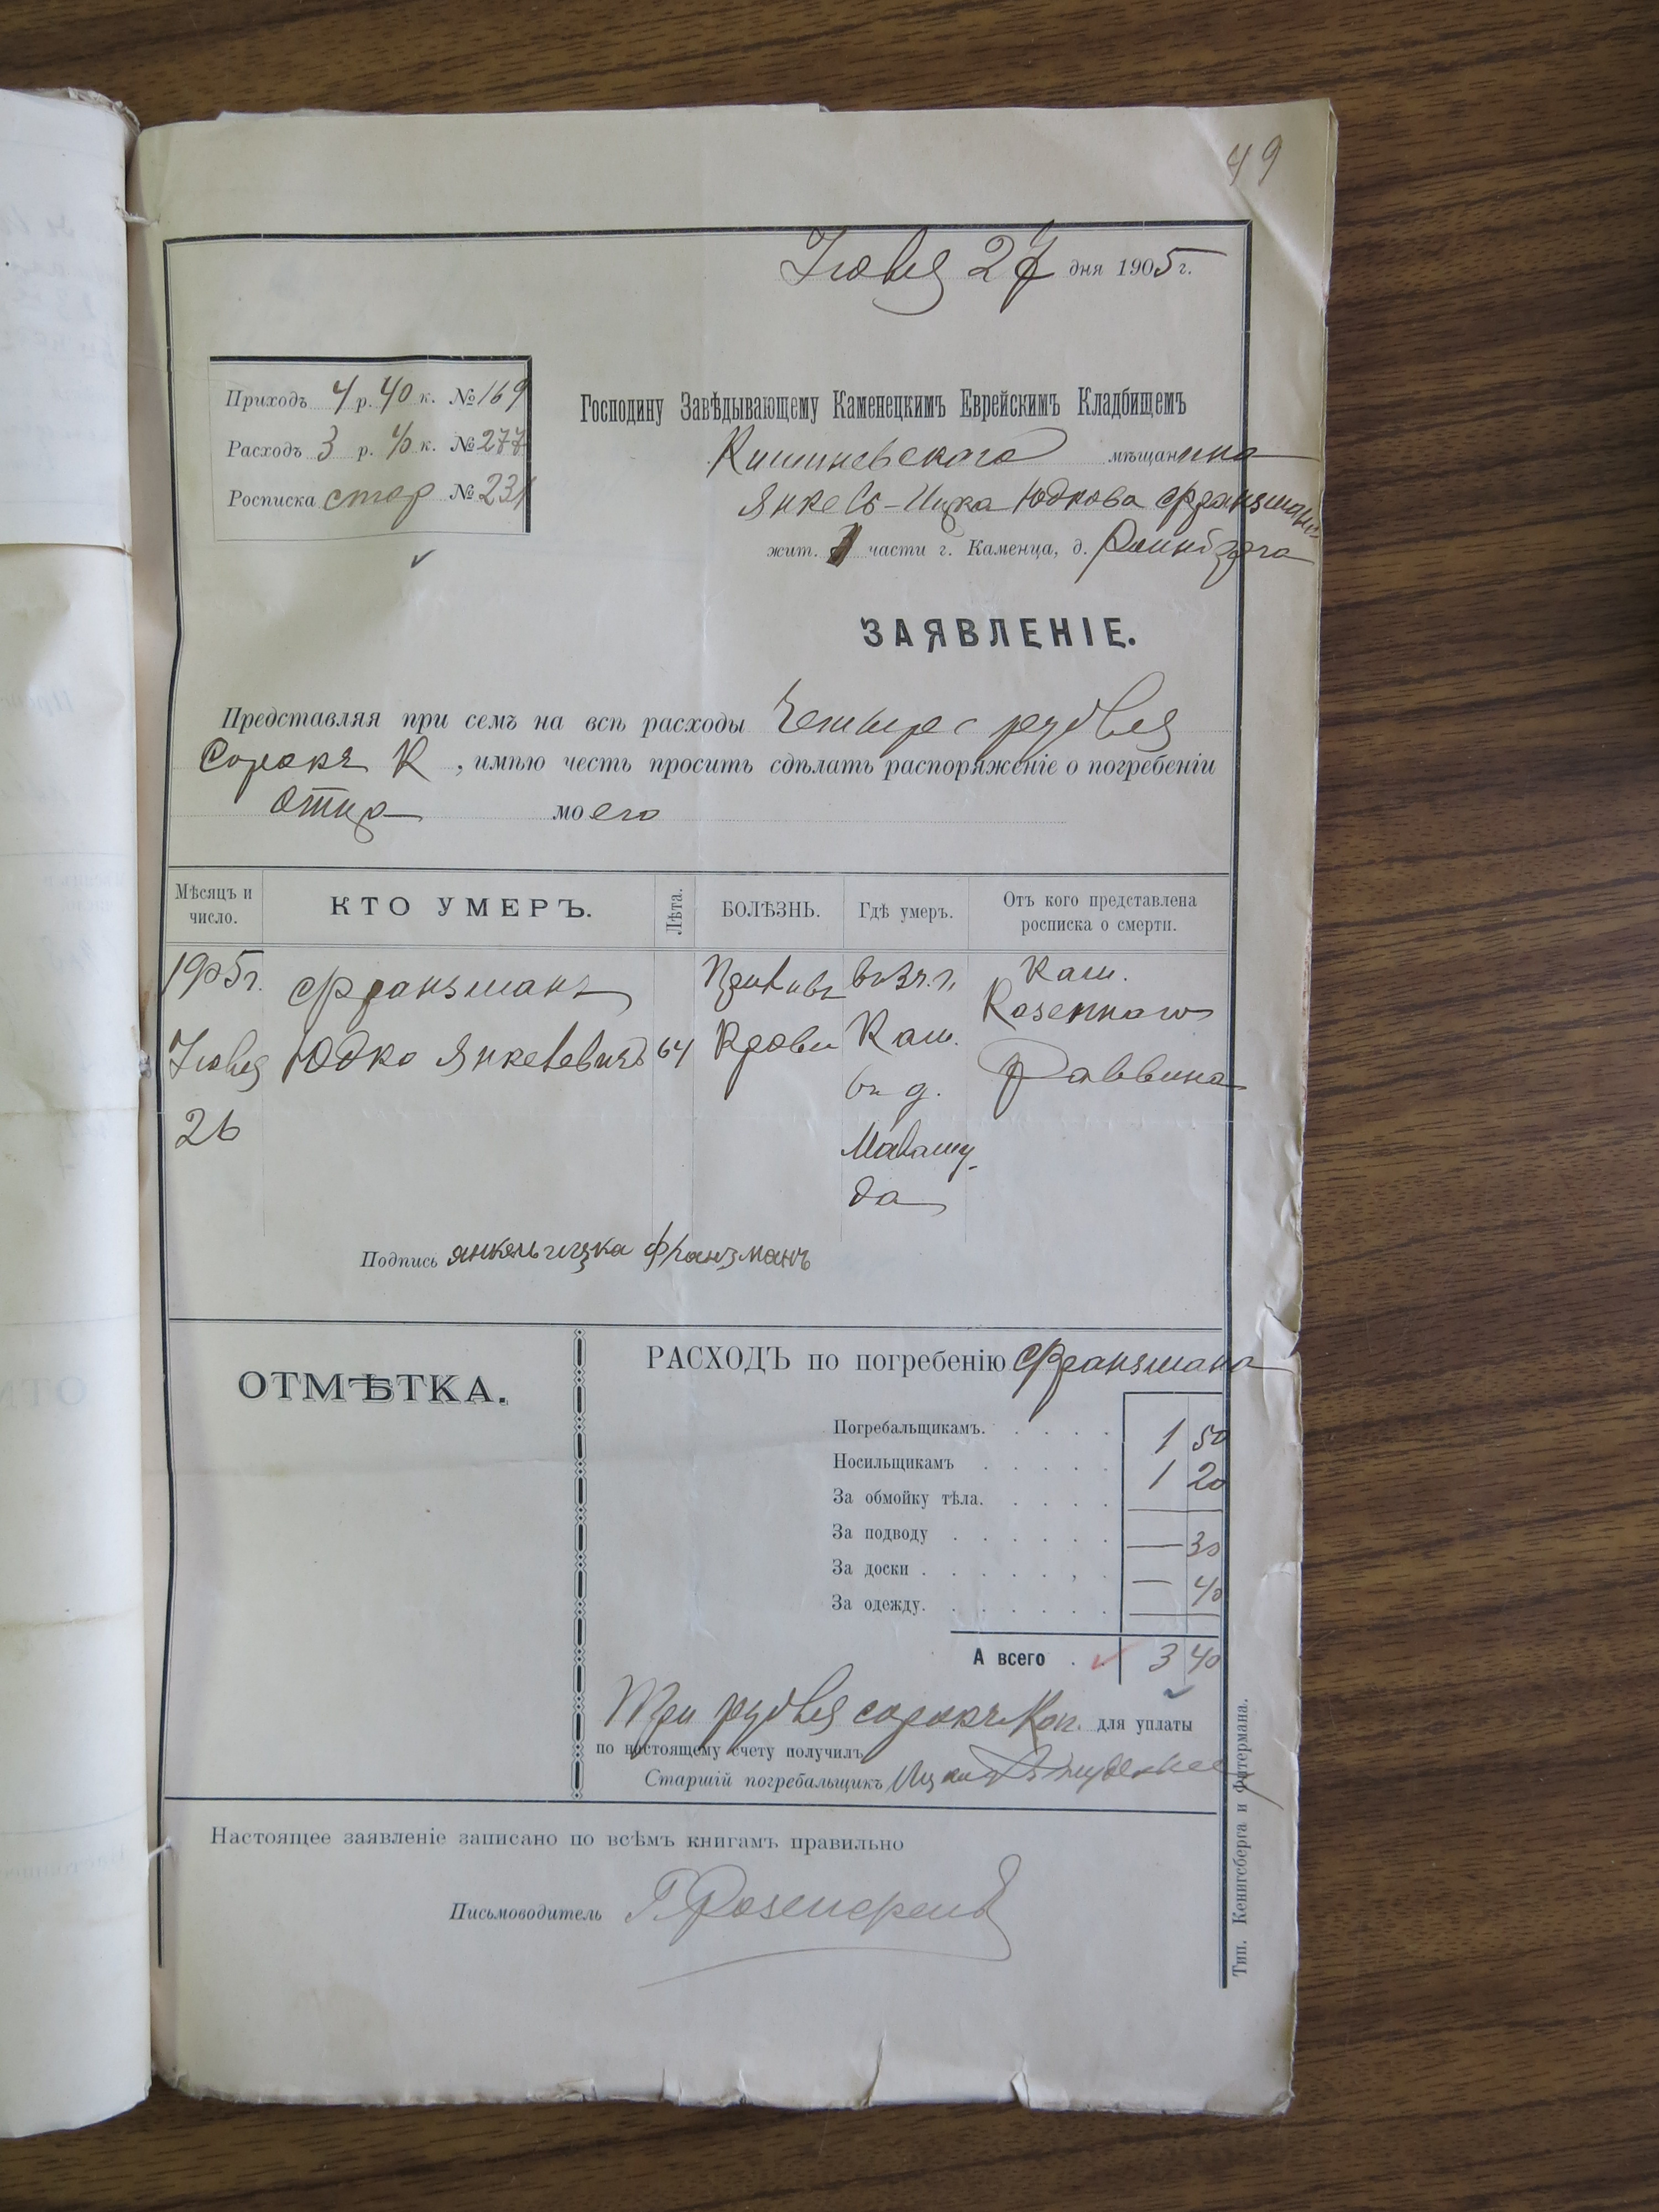 49
Іюля 27 дня 1905 г.
Приходъ 4 р. 40 к. № 169
Расходъ 3 р. 40 к. № 277
Росписка стар № 231
Господину Завѣдывающему Каменецкимъ Еврейскимъ Кладбищемъ
Кишиневскаго мѣщанина
Янкель-Ицка Юдкова Франзмана
жит. части г. Каменца, д.
ЗАЯВЛЕНІЕ.
Представляя при семъ на всѣ расходы Четыре рубля
Сорокъ К, имѣю честь просить сдѣлать распоряженіе о погребеніи
отца моего
Мѣсяцъ и число. КТО УМЕРЪ. Лѣта. БОЛѢЗНЬ. Гдѣ умеръ. Отъ кого представлена росписка о смерти.
1905 г. Франзманъ Приливъ Кам.
Іюля Юдко Янкелевичъ 64 Крови Кам. Раввина
26 въ д.
Подпись янкель ицка Франзманъ
ОТМѢТКА.
РАСХОДЪ по погребенію Франзмана
Погребальщикамъ. 1 50
Носильщикамъ 1 20
За обмойку тѣла.
За подводу — 30
За доски — 40
За одежду.
А всего 3 40
Три рубля сорокъ Коп. для уплаты
по настоящему счету получилъ
Старшій погребальщикъ
Настоящее заявленіе записано по всѣмъ книгамъ правильно
Письмоводитель
Тип. Кенигсберга и Фитермана.